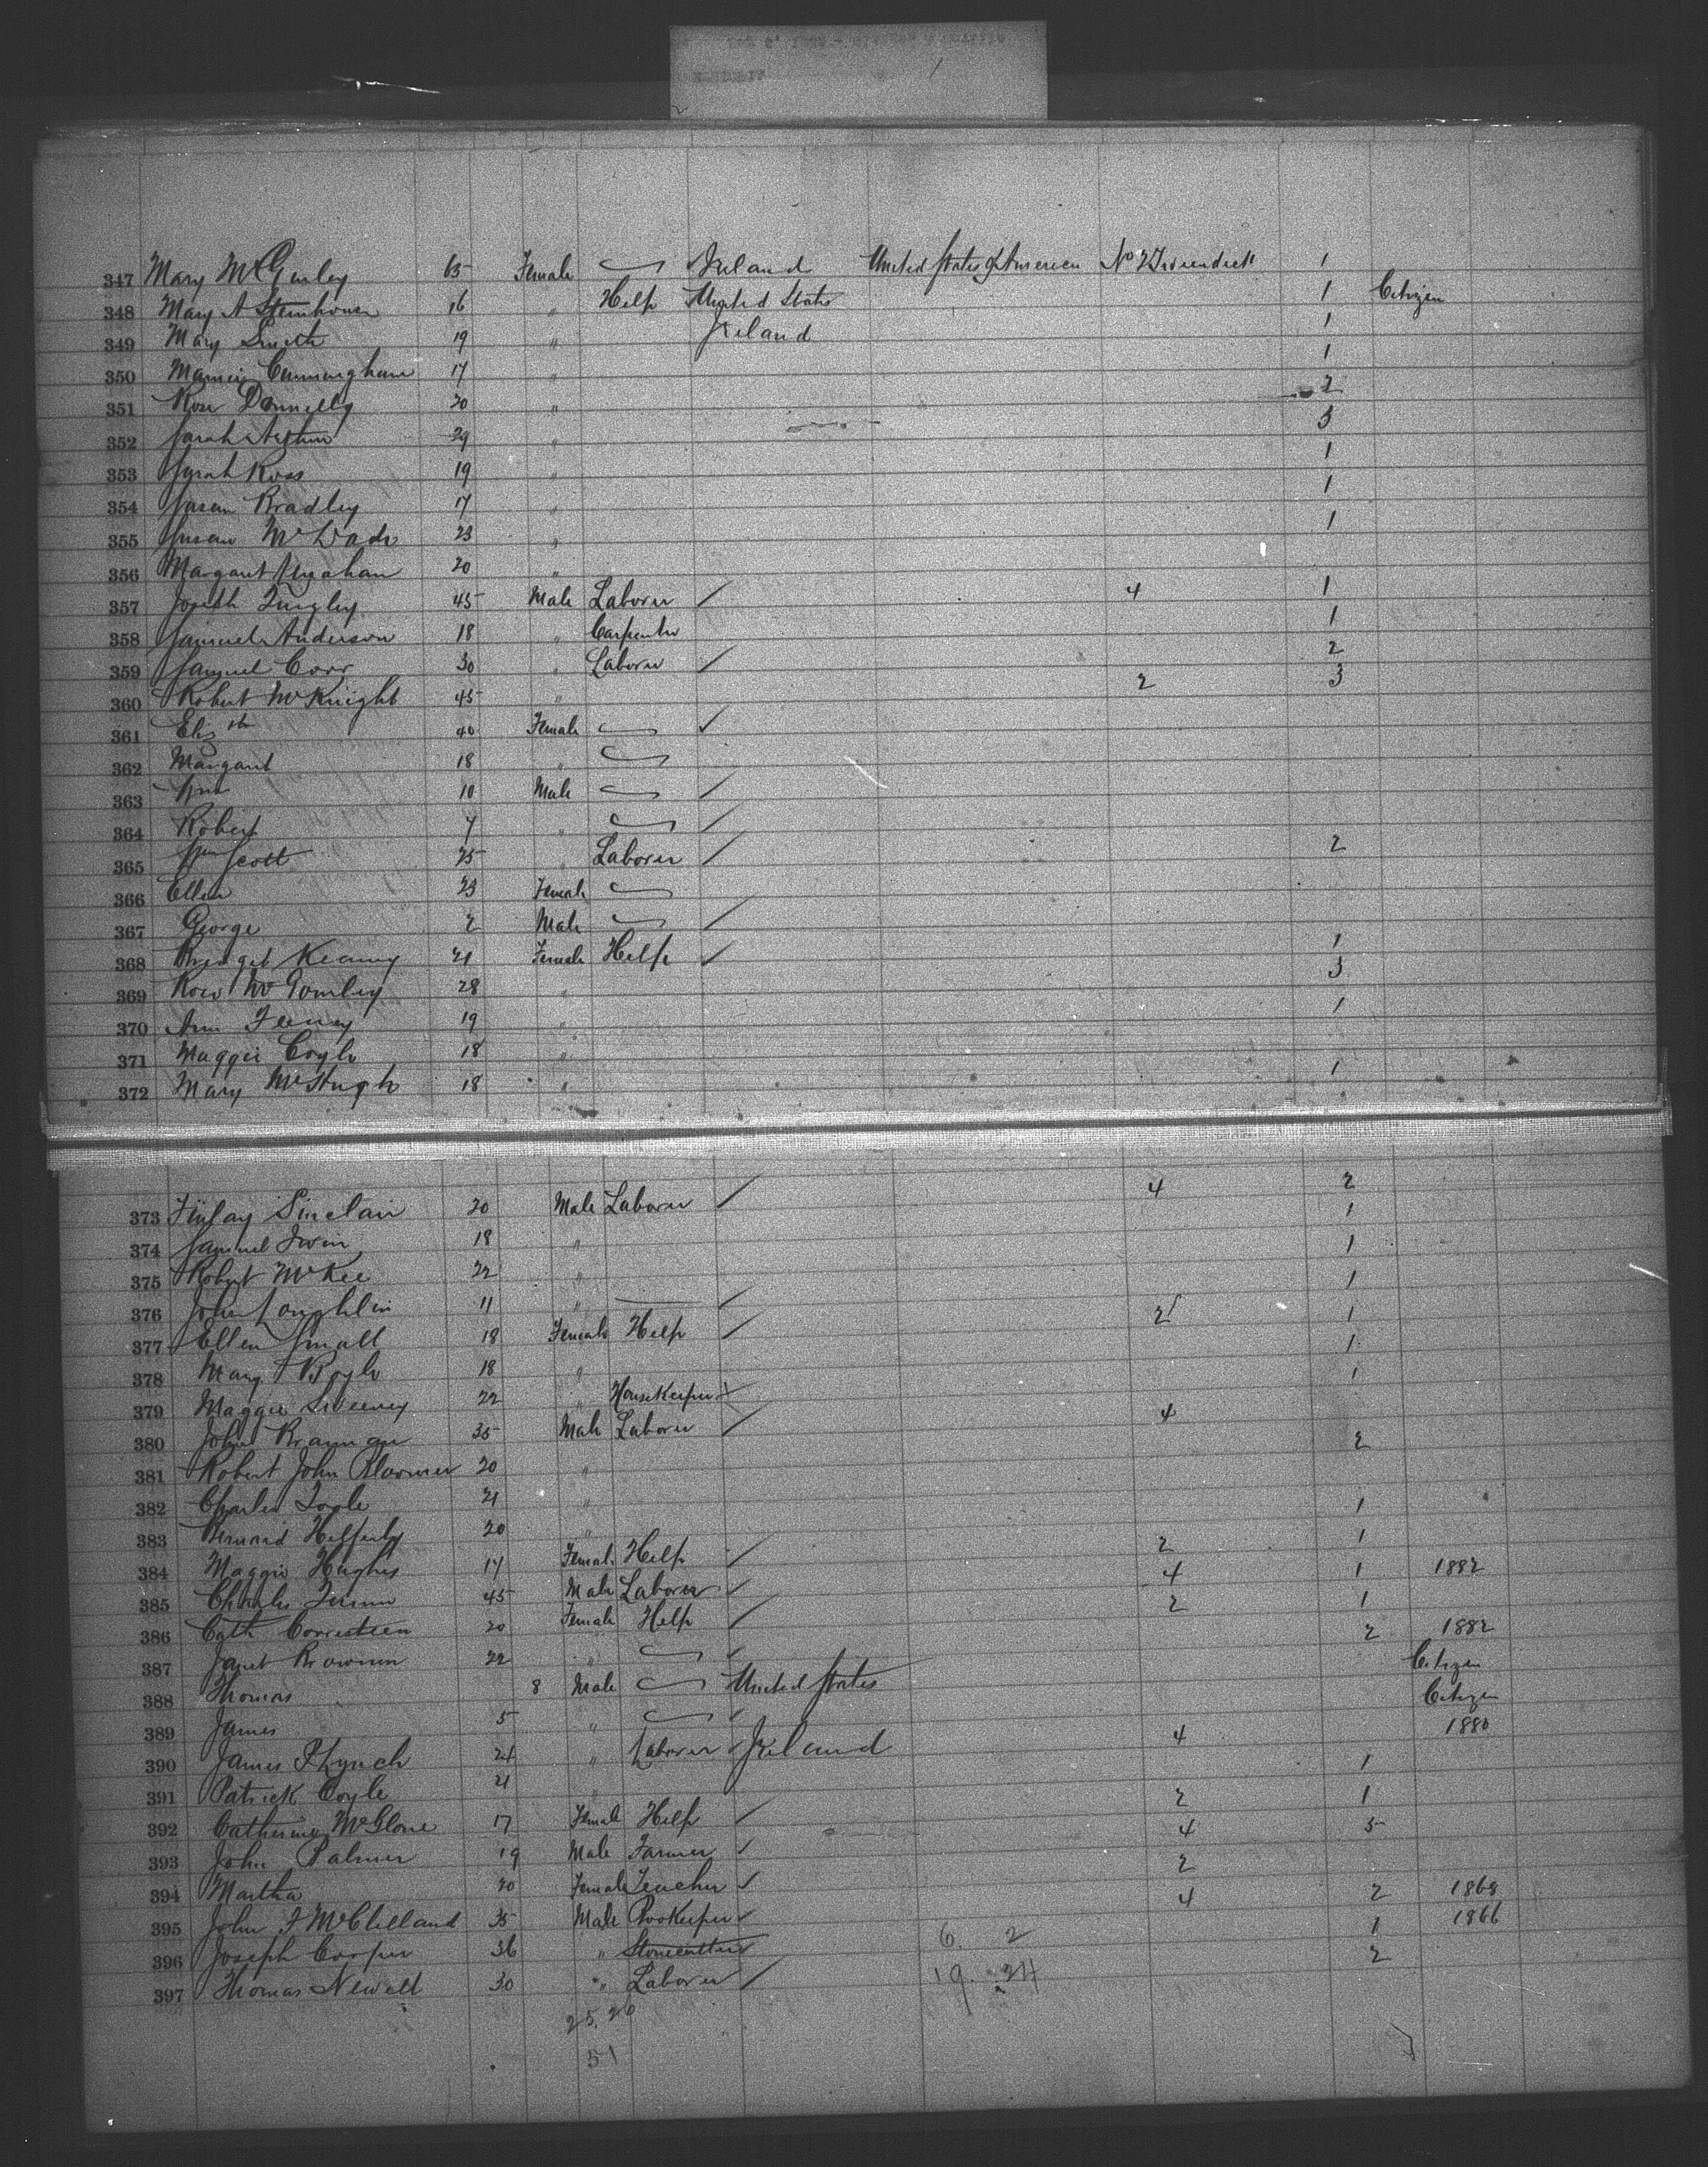 347 Mary McGinley 65 Female Ireland United States of America No 2 1
348 Mary A Stenhouse 16 " Help United States 1 Citizen
349 Mary Smith 19 " Ireland 1
350 Mamie Cunningham 17 " 1
351 Rose Donnelly 20 " 2
352 Sarah 29 " 3
353 Sarah Ross 19 " 1
354 Susan Bradley 17 " 1
355 Susan McDade 23 " 1
356 Margaret 20 "
357 Joseph 45 Male Laborer ✓ 4 1
358 Samuel Anderson 18 " Carpenter 1
359 Samuel Corr 30 " Laborer ✓ 2
360 Robert McKnight 45 " 2 3
361 Elizth 40 Female ✓
362 Margaret 18 "
363 Wm 10 Male ✓
364 Robert 7 " ✓
365 Wm Scott 25 " Laborer ✓ 2
366 Ellen 23 Female
367 George 2 Male ✓
368 Bridget Keanny 21 Female Help ✓ 1
369 Rose McGomley 28 " 3
370 Ann Feeney 19 " 1
371 Maggie Coyle 18 "
372 Mary McHugh 18 " 1
373 Finlay Sinclair 20 Male Laborer ✓ 4 2
374 Samuel Irwin 18 " 1
375 Robert McKee 22 " 1
376 John Loughlin 11 " ✓ 1
377 Ellen Small 18 Female Help ✓ 2 1
378 Mary Boyle 18 " 1
379 Maggie Sweeney 22 " Housekeeper 1
380 John Brannan 35 Male Laborer ✓ 4
381 Robert John 20 " 2
382 Charles Toole 21 "
383 Bernard Helferty 20 " 1
384 Maggie Hughes 17 Female Help ✓ 2 1
385 Charles 45 Male Laborer ✓ 4 1 1882
386 Cath 20 Female Help ✓ 2 1
387 Janet 22 " ✓ 2 1882
388 Thomas 8 Male United States Citizen
389 James 5 " ✓ Citizen
390 James P Lynch 24 " Laborer ✓ Ireland 4 1880
391 Patrick Coyle 21 " 1
392 Catherine McGlone 17 Female Help ✓ 2 1
393 John Palmer 19 Male Farmer ✓ 4 5
394 Martha 20 Female Teacher ✓ 2
395 John F McClelland 35 Male Bookeeper ✓ 4 2 1868
396 Joseph Cooper 36 " Stonecutter 1 1866
397 Thomas Newell 30 " Laborer ✓ 2
6. 2
19. 24
25. 26
51